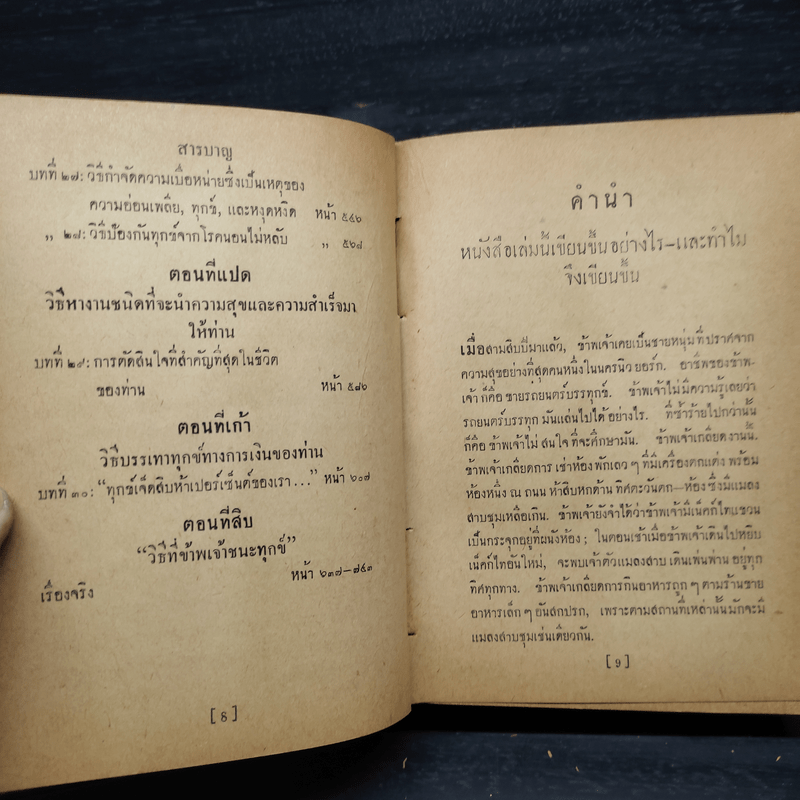 สารบาญ
บทที่ ๒๗: วิธีกำจัดความเบื่อหน่ายซึ่งเป็นเหตุของ
ความอ่อนเพลีย, ทุกข์, และหงุดหงิด หน้า ๕๔๖
„ ๒๘: วิธีป้องกันทุกข์จากโรคนอนไม่หลับ „ ๕๖๘
ตอนที่แปด
วิธีหางานชนิดที่จะนำความสุขและความสำเร็จมา
ให้ท่าน
บทที่ ๒๙: การตัดสินใจที่สำคัญที่สุดในชีวิต
ของท่าน หน้า ๕๘๖
ตอนที่เก้า
วิธีบรรเทาทุกข์ทางการเงินของท่าน
บทที่ ๓๐: “ทุกข์เจ็ดสิบห้าเปอร์เซ็นต์ของเรา...” หน้า ๖๐๗
ตอนที่สิบ
“วิธีที่ข้าพเจ้าชนะทุกข์”
หน้า ๖๓๗—๗๔๓
เรื่องจริง
[ 8 ]
คำนำ
หนังสือเล่มนี้เขียนขึ้นอย่างไร—และทำไม
จึงเขียนขึ้น
เมื่อสามสิบปีมาแล้ว, ข้าพเจ้าเคยเป็นชายหนุ่มที่ปราศจาก
ความสุขอย่างที่สุดคนหนึ่งในนครนิวยอร์ก. อาชีพของข้าพ-
เจ้า ก็คือ ขายรถยนตร์บรรทุกข์. ข้าพเจ้าไม่มีความรู้เลยว่า
รถยนตร์บรรทุก มันแล่นไปได้อย่างไร. ที่ซ้ำร้ายไปกว่านั้น
ก็คือ ข้าพเจ้าไม่สนใจที่จะศึกษามัน. ข้าพเจ้าเกลียดงานนี้.
ข้าพเจ้าเกลียดการเช่าห้องพักเลว ๆ ที่มีเครื่องตกแต่งพร้อม
ห้องหนึ่ง ณ ถนน ห้าสิบหกด้าน ทิศตะวันตก—ห้องซึ่งมีแมลง
สาบชุมเหลือเกิน. ข้าพเจ้ายังจำได้ว่าข้าพเจ้ามีเน็คก์ไทแขวน
เป็นกระจุกอยู่ที่ผนังห้อง; ในตอนเช้าเมื่อข้าพเจ้าเดินไปหยิบ
เน็คก์ไทอันใหม่, จะพบเจ้าตัวแมลงสาบเดินเพ่นพ่านอยู่ทุก
ทิศทุกทาง. ข้าพเจ้าเกลียดการกินอาหารถูก ๆ ตามร้านขาย
อาหารเล็ก ๆ อันสกปรก, เพราะตามสถานที่เหล่านั้นมักจะมี
แมลงสาบชุมเช่นเดียวกัน.
[ 9 ]